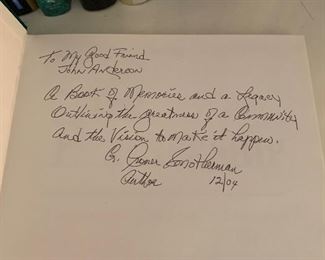 To My Good Friend
John Anderson
A Book of Memories and a Legacy
Outlining the greatness of a Community
and the Vision to make it happen.
G.
Author 12/04